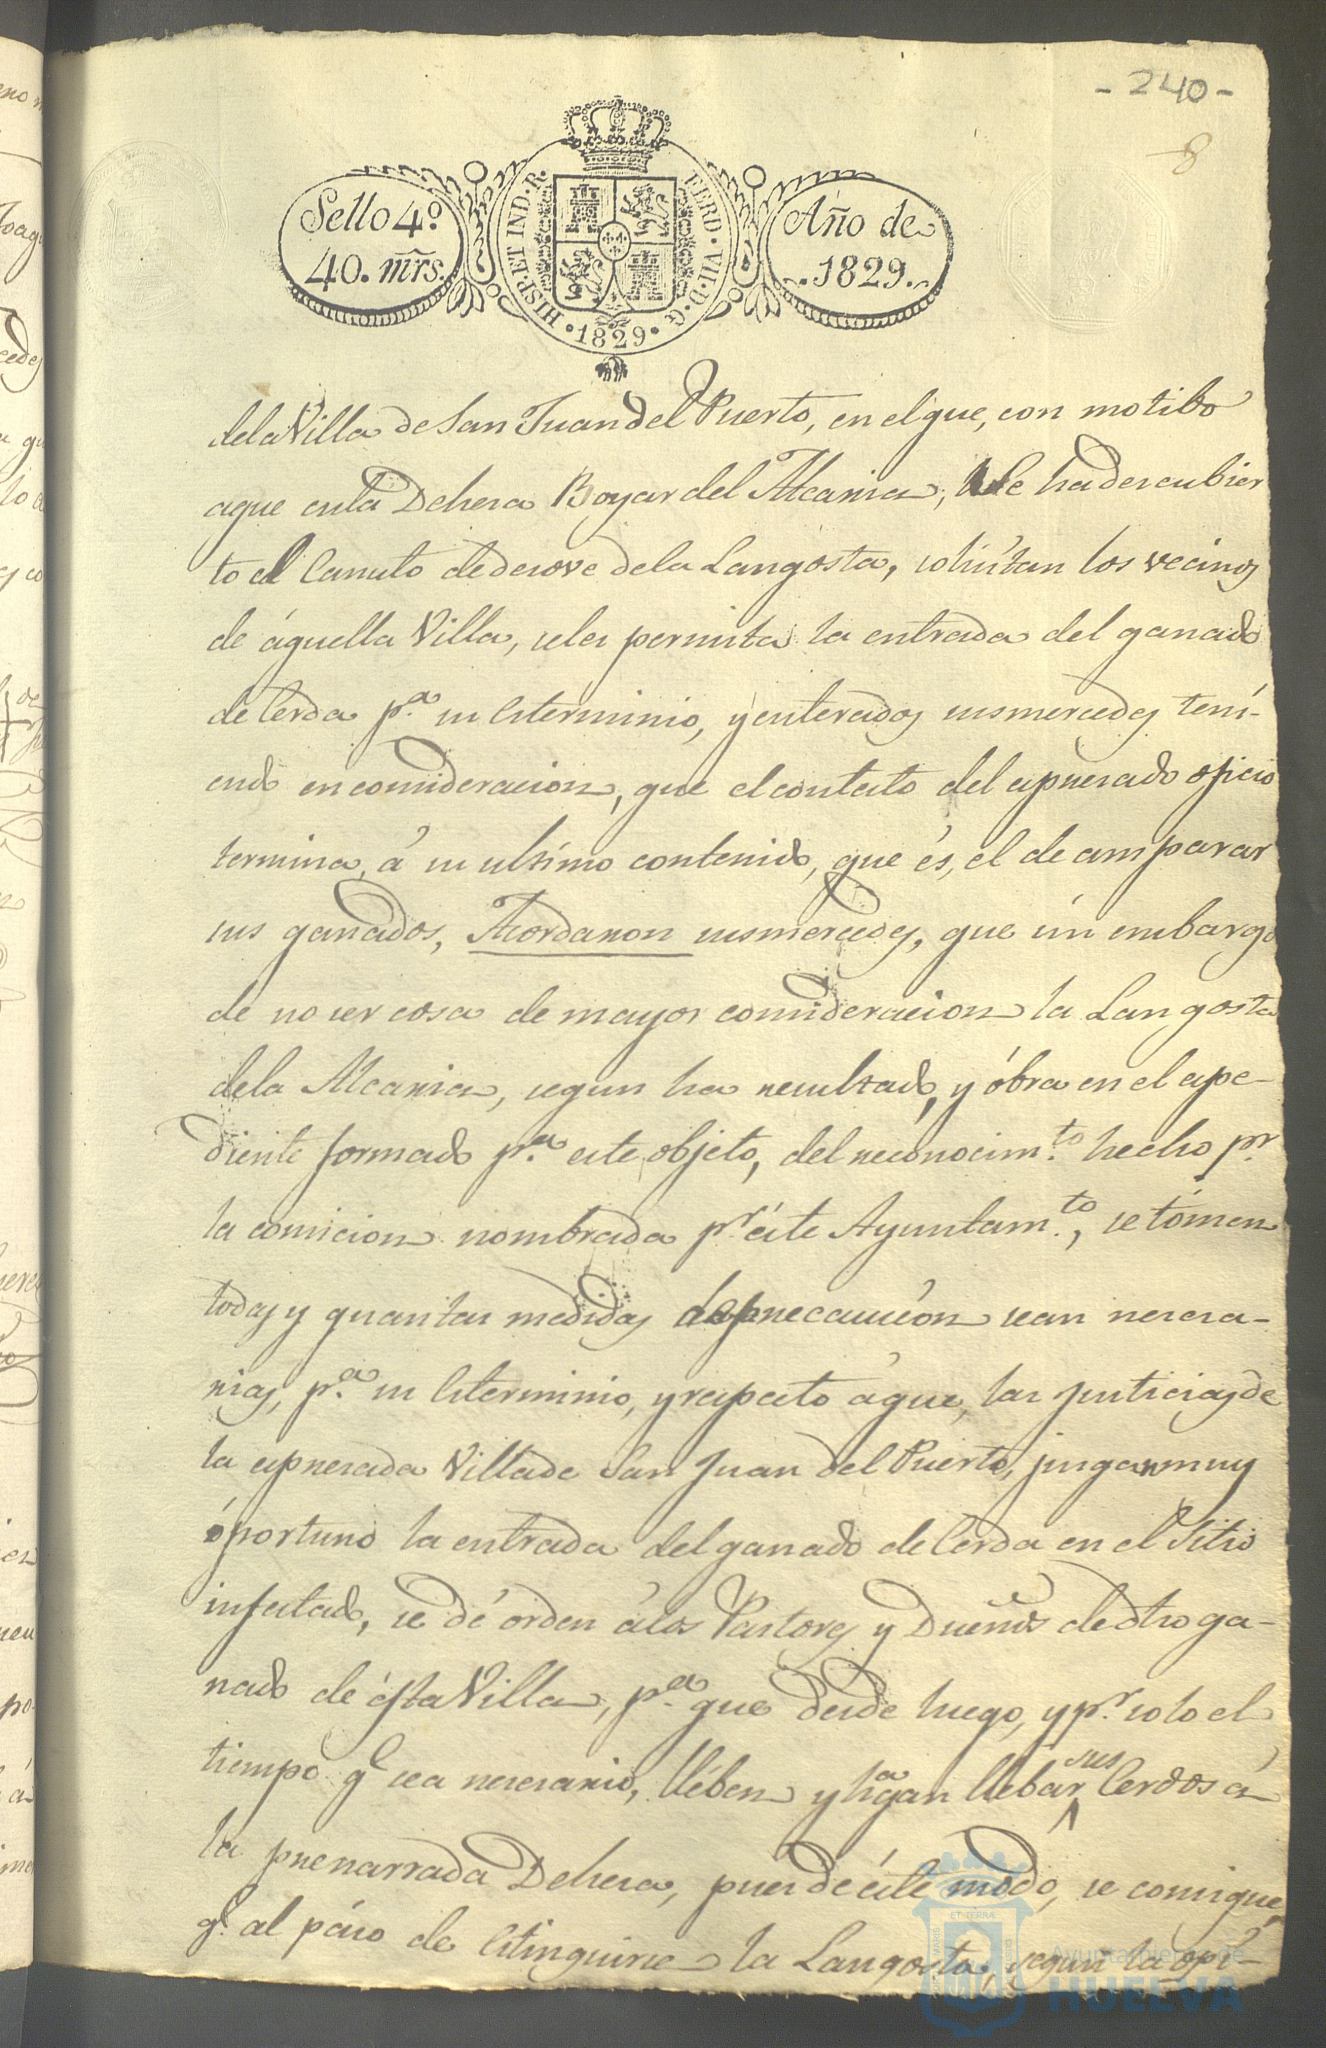 - 240 -
8
Sello 4º
40. mrs.
HISP. ET IND. R.
FERD. VII. D. G.
· 1829 ·
Año de
1829.
de la Villa de San Juan del Puerto, en el que, con motibo
aque en la Dehesa Boyar del Alcania, se ha descubier
to el Canuto de desove de la Langosta, solicitan los vecinos
de aquella Villa, seles permita la entrada del ganado
de Cerda pª. su esterminio, y enterados susmercedes tení-
endo en consideracion, que el contesto del espresado oficio
termina, á su ultimo contenido, que és, el de amparar
sus ganados, Acordaron susmercedes, que sin embargo
de no ser cosa de mayor consideracion la Langosta
dela Alcania, segun ha resultado, y óbra en el espe-
diente formado pª. este objeto, del reconocimtº. hecho pr.
la comicion nombrada pr. éste Ayuntamtº., se tómen
todas y quantas medidas de precaucion sean necesa-
rias, pª. su esterminio, y respecto áque, las Justicias de
la espresada Villa de San Juan del Puerto, jusgan muy
óportuno la entrada del ganado de Cerda en el Sitio
infestado, se dé orden álos Pastores y Dueños de dho ga-
nado de ésta Villa, pª. que desde luego, y pr. solo el
tiempo q. sea necesario, llében y hagan llebar sus Cerdos á
la prenarrada Dehesa, pues de éste modo, se consigue,
q. al páso de estinguirse la Langosta, segun la opi-
ET TERRÆ
Ayuntamiento de
HUELVA